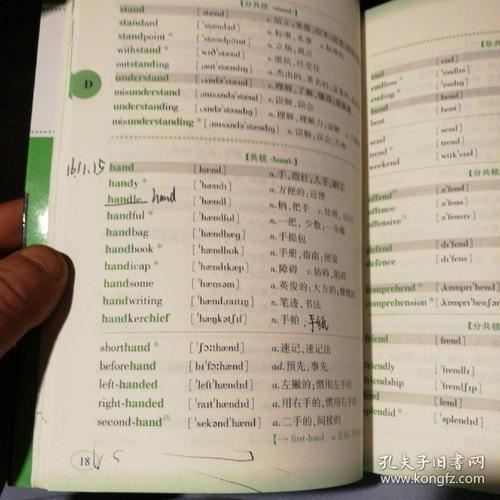 【分共核 -stand-】
stand ['stænd]
standard ['stændəd] n.标准,水准 a.标准的
standpoint* ['stændpɔɪnt] n.立场;观点
withstand [wɪð'stænd] v.抵抗,经受住
outstanding [aut'stændɪŋ] a.杰出的,著名的
understand [ˌʌndə'stænd] v.理解,了解
misunderstand [ˌmɪsʌndə'stænd] v.误解,误会
understanding [ˌʌndə'stændɪŋ] n.理解,理解力;谅解
misunderstanding* [ˌmɪsʌndə'stændɪŋ] n.误解;误会;不和
D
【共核 -hand-】
16.11.15
hand [hænd] n.手,指针;人手,职工
handy* ['hændɪ] a.方便的;近便
handle hand ['hændl] n.柄,把手 v.处理
handful* ['hændful] n.一把,少数;一小撮
handbag ['hændbæg] n.手提包
handbook* ['hændbuk] n.手册,指南;便览
handicap* ['hændɪkæp] n.障碍 v.妨碍,阻碍
handsome ['hænsəm] a.英俊的;大方的;慷慨的
handwriting ['hændˌraɪtɪŋ] n.笔迹,书法
handkerchief ['hæŋkətʃɪf] n.手帕,手纸
shorthand* ['ʃɔːthænd] a.速记,速记法
beforehand [bɪ'fɔːhænd] ad.预先,事先
left-handed ['left'hændɪd] a.左撇的;惯用左手的
right-handed ['raɪt'hændɪd] a.用右手的,惯用右手的
second-hand ['sekənd'hænd] a.二手的,间接的
【→ first-hand a.直接
18
end [end]
endless* ['endlɪs]
ending* ['endɪŋ]
bend [bend]
bent [bent]
send [send]
trend* [trend]
weekend [wiːk'end]
【分共核
offend [ə'fend]
offence [ə'fens]
offensive [ə'fensɪv]
defend [dɪ'fend]
defence [dɪ'fens]
comprehend*
comprehension*
【分共核
friend [frend]
friendly ['frendlɪ]
friendship ['frendʃɪp]
lend [lend]
splendid* ['splendɪd]
孔夫子旧书网